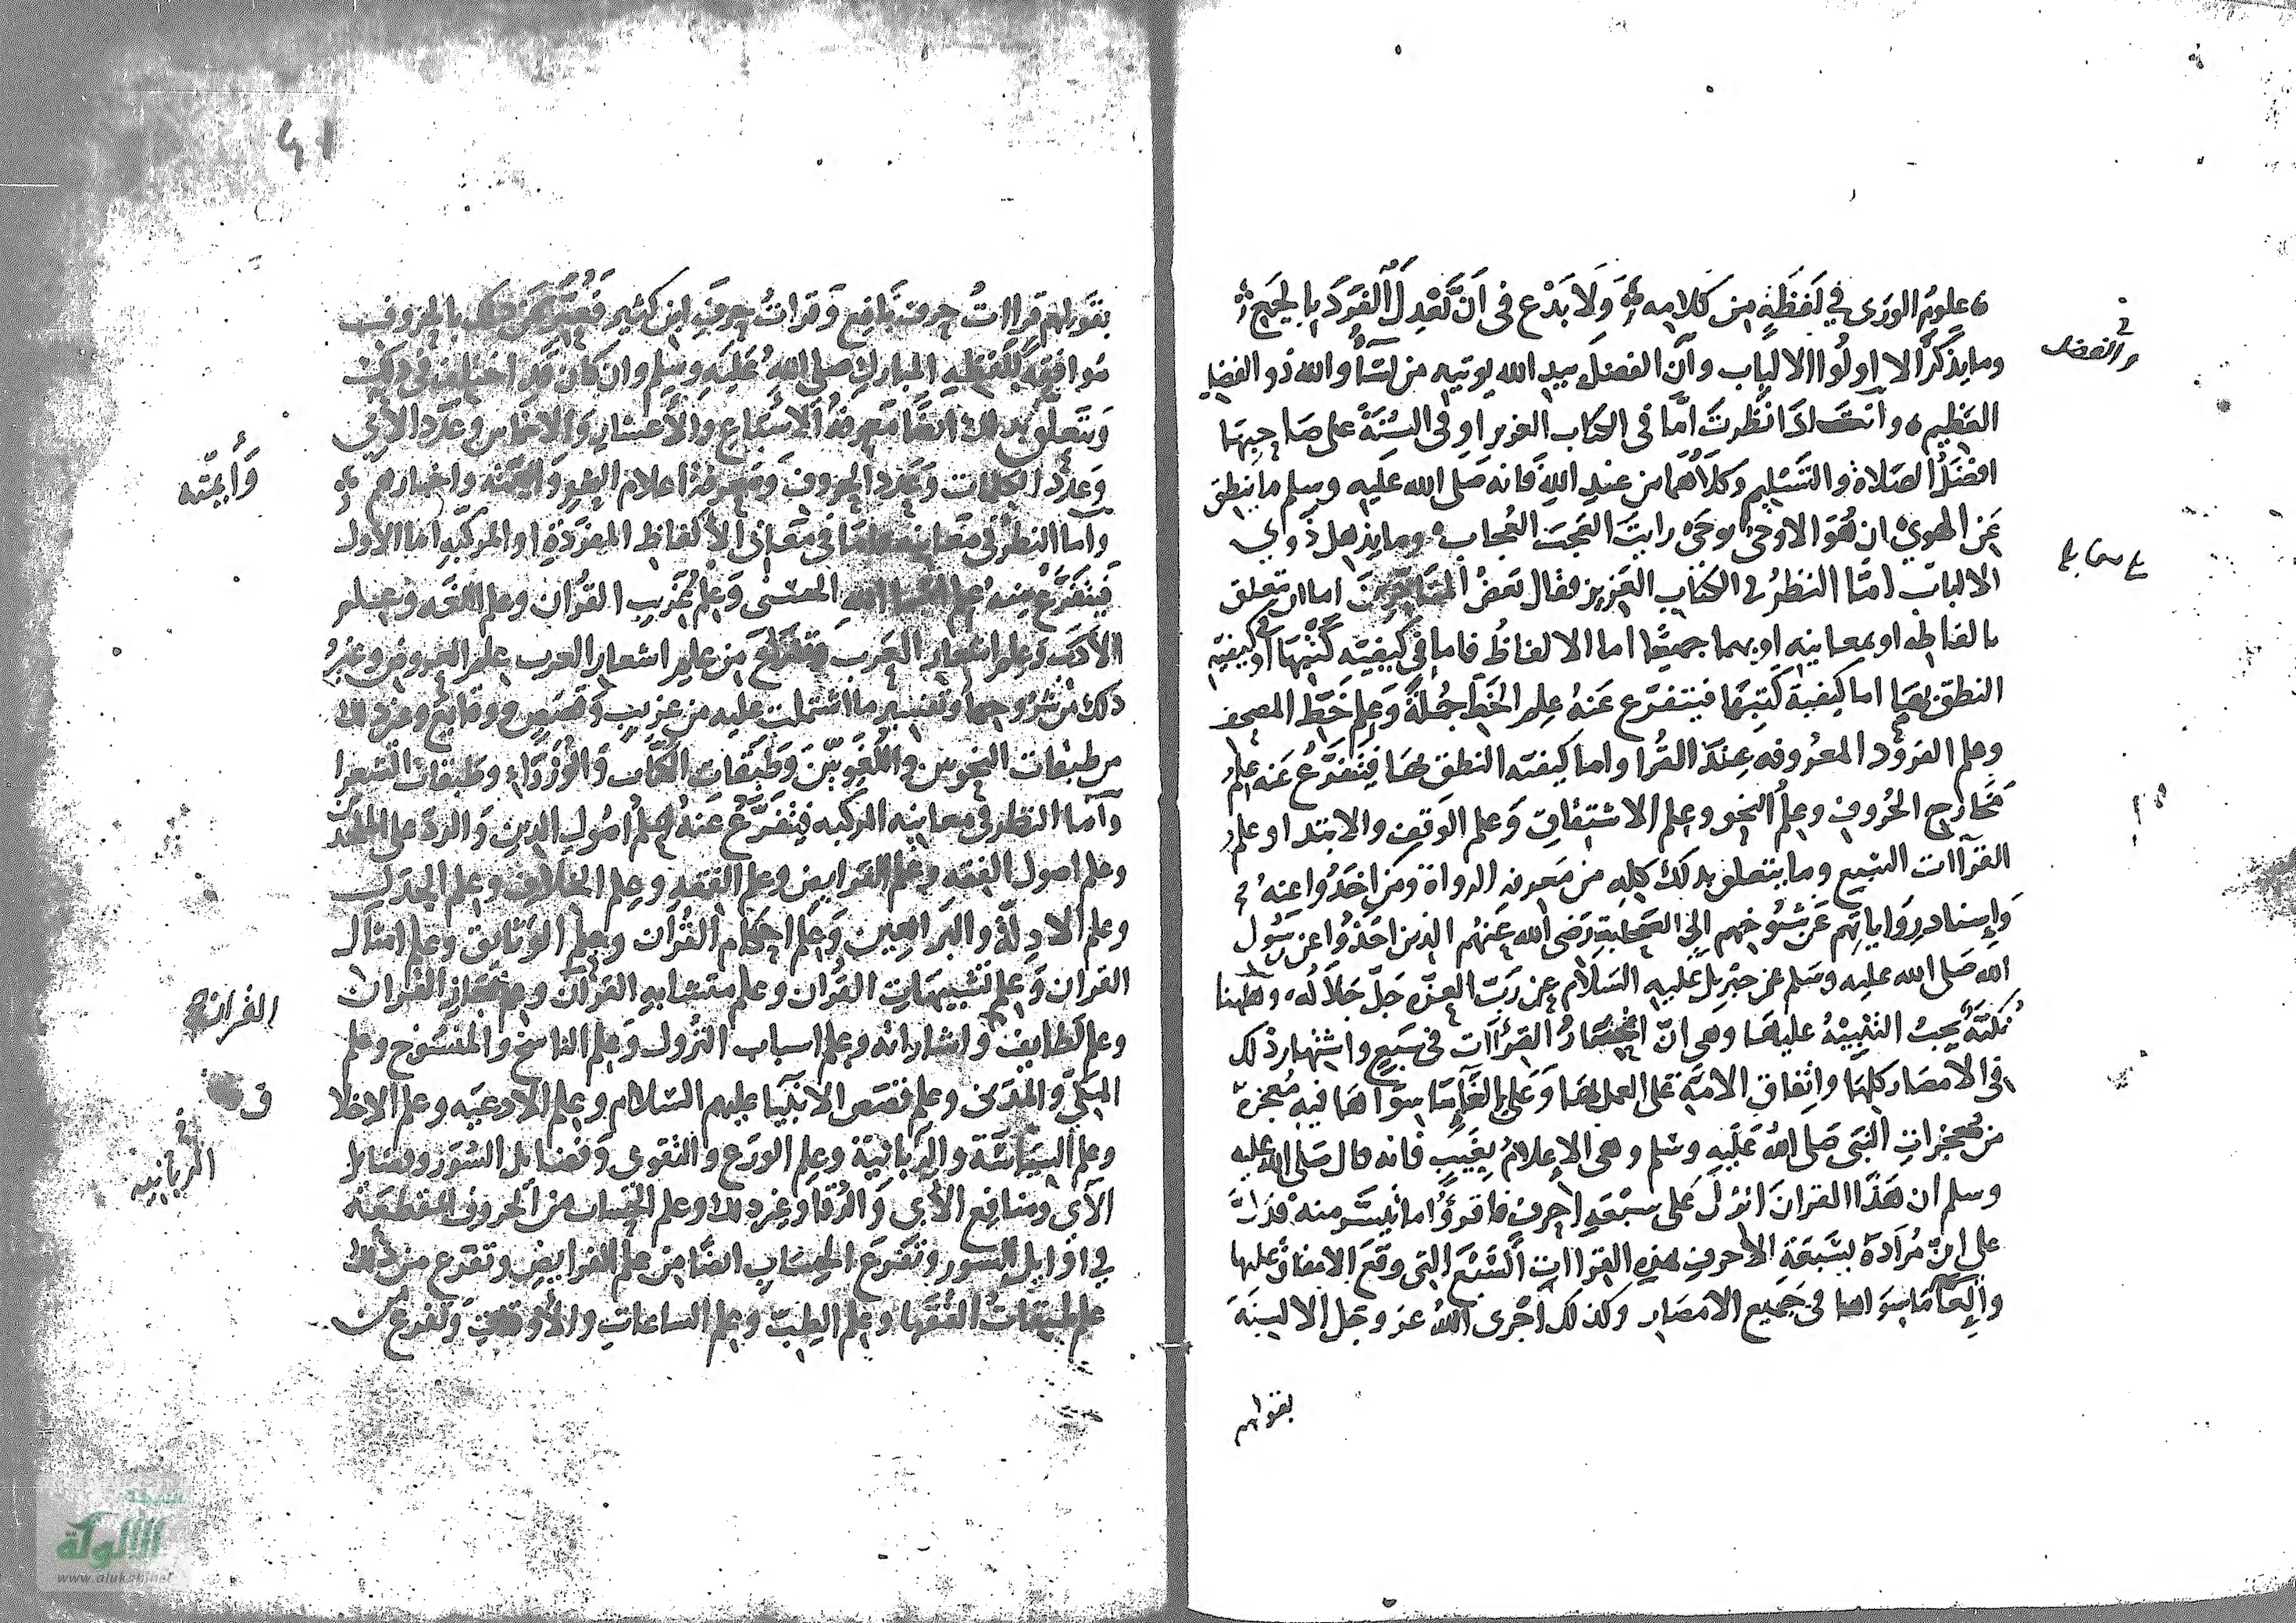 علومُ الورَى في لَفظَةٍ من كلامِه وَلَا بَدْع في اَنَّ تَعْدِلَ الفَرْدَ بالجَمع
وما يذّكر الا اولُوا الالباب وأنّ الفضلَ بيد الله يوتيه من يشآ والله ذو الفضل
العظيم وانت اذا نظرتَ امّا في الكتاب العزيز او في السنّة على صاحبها
افضلُ الصلاة والتسليم وكلاهما من عندِ اللهِ فانه صَلى الله عَليه وسلم ما ينطق
عَن الهوى ان هُوَ الا وحىٌ يوحَى رايتَ العَجبَ العُجاب وما يذهل ذوي
الالباب امّا النظرُ في الكتاب العَزيز فقال بَعضُ اما ان تتعلق
بالفاظه او بمعانيه او بهما جميعًا اما الالفاظُ فاما في كيفيّه كَتْبِهَا او كيفيّه
النطق بهَا اما كيفية كَتبهَا فيتفرّع عَنهُ علم الخَطّ جُملةً وَعِلم خَطّ المصحف
وعلم المعرُوفه عِندَ القُرا واما كيفيّه النطق بهَا فيَتفَرّعُ عَنه علمُ
مَخَارج الحُروفِ وعِلمُ النحو وعِلم الاشتقاقِ وَعلم الوَقفِ والابتدا وعلمُ
القرآات السّبع وما يتعلق بذلك كلِه من مَعرفه الرواة ومَن اخذُوا عنهُ
وَاِسنادِ رِوَاياتِهم عَن شُيُوخهم اِلى الصَّحابة رَضى الله عَنهُم الذين اخذُوا عن رَسُول
الله صَلى الله عليه وسَلم عن جبريل عَليه السَلام عن رَبّ العزّه جَلّ جَلالُه وهاهنا
نُكتةٌ يجبُ التنبيْهُ عليهَا وهى انّ انحصَارَ القرَاآت في سَبعٍ واشتهار ذلك
في الامصَار كلهَا واتِفاق الامّةِ عَلى العمل بهَا وَعَلى اِلغَآ مَا سِوَاهَا فيه مُعجزة
من مُعجزاتِ النَبى صَلى اللهُ عَليهِ وسَلم وهى الاِعلامُ بِغَيبٍ فانه قال صَلى الله عليه
وسلم ان هَذا القرانَ انزلَ عَلى سَبْعَهِ احرفٍ فاقرؤُا ما تيسّر منه فدَلّ
على انّ مُرَادَهُ بسَبعَةِ الاحرفِ هذه القرَاات السّبعَ التي وقَع الاتفاق عليها
واِلغَآ مَا سِوَاها في جَميع الامصَار وكذلك اجرى اللهُ عز وجل الالسِنَة
بقولهم
والفضل
بقولهم قرااتُ حرف نافع وَقراتُ حِرفِ ابن كثير بالحُروف
مُوافقهً للفظِهِ المباركِ صلى اللهُ عَليَهِ وسَلم وان كان قد اختلف في ذلك
وَيتَعلّق بذلك ايضًا مَعرفةُ الاسبَاع والاعشار والاخماس وعَدَد الآيِ
وَعدَد الكلمات وَعَدد الحروفِ وَمعرفة اعلام واخبارهم
وَأيمتِه
واما النظرُ في مَعَانيهِ فامّا في مَعَانى الألفاظ المفرَدةِ او المركبّهِ امّا الأول
فيتفرّعُ منهُ عِلم الله الحسنى وَعِلم غريب القُرآن وعلم اللغَه وَعِلم
الأدَب وَعلم اشعار العَرب من علم اشعار العرب علم العروض وغيرُ
ذلك من شروحِها وتفسير ما اشتملت عليه من غريب وَقصَصٍ ووقايع وغير ذلك
من طبقات النحوين واللُغَوِيّينَ وَطبقاتِ الكتّاب وَالوُزَرَاء وَطبقات الشعرا
وَأمّا النظر في معانيه المركبه فيَتَفرّعُ عَنهُ عِلمُ اصُول الدين وَالردّ على
وعلم اصول الفقهِ وعلم الفرايض وعلم الفقه وعِلم الخِلاف وعلم الجدَل
وعلم الادِلةُ والبَراهِين وَعِلم احكام القُرآن وعلم الوثايق وعلم امثال
القران وَعِلم تشبيهات القُرآن وعلم متشابهِ القرآن وعلم اعجاز القرآن
وعلم لَطايف واشاراتهِ وعلم اسباب النزُول وَعِلم الناسخ والمنسوخ وعلم
القرانيه
المكّي والمدَنى وعلم قصَص الانبيَا عليهم السَلام وعِلم الادعيّه وعلم الاخلا
ق
وعلم السِيَاسَة والرّبانيّة وعِلم الورَع والتقوى وَفضايل السُوَر وفضايل
الربانيه
الآيِ ومنافِع الآيِ وَالرُقا وغير ذلك وعلم الحِسَاب من الحروف المقطعَهُ
في اوايلِ السّور وتَفرّعَ الحِسَاب ايضًا من عِلم الفرايض وتفرع من ذلك
علم طبقاتُ الفُقَها وعِلم الطِبّ وعِلم الساعاتِ وتفرع من